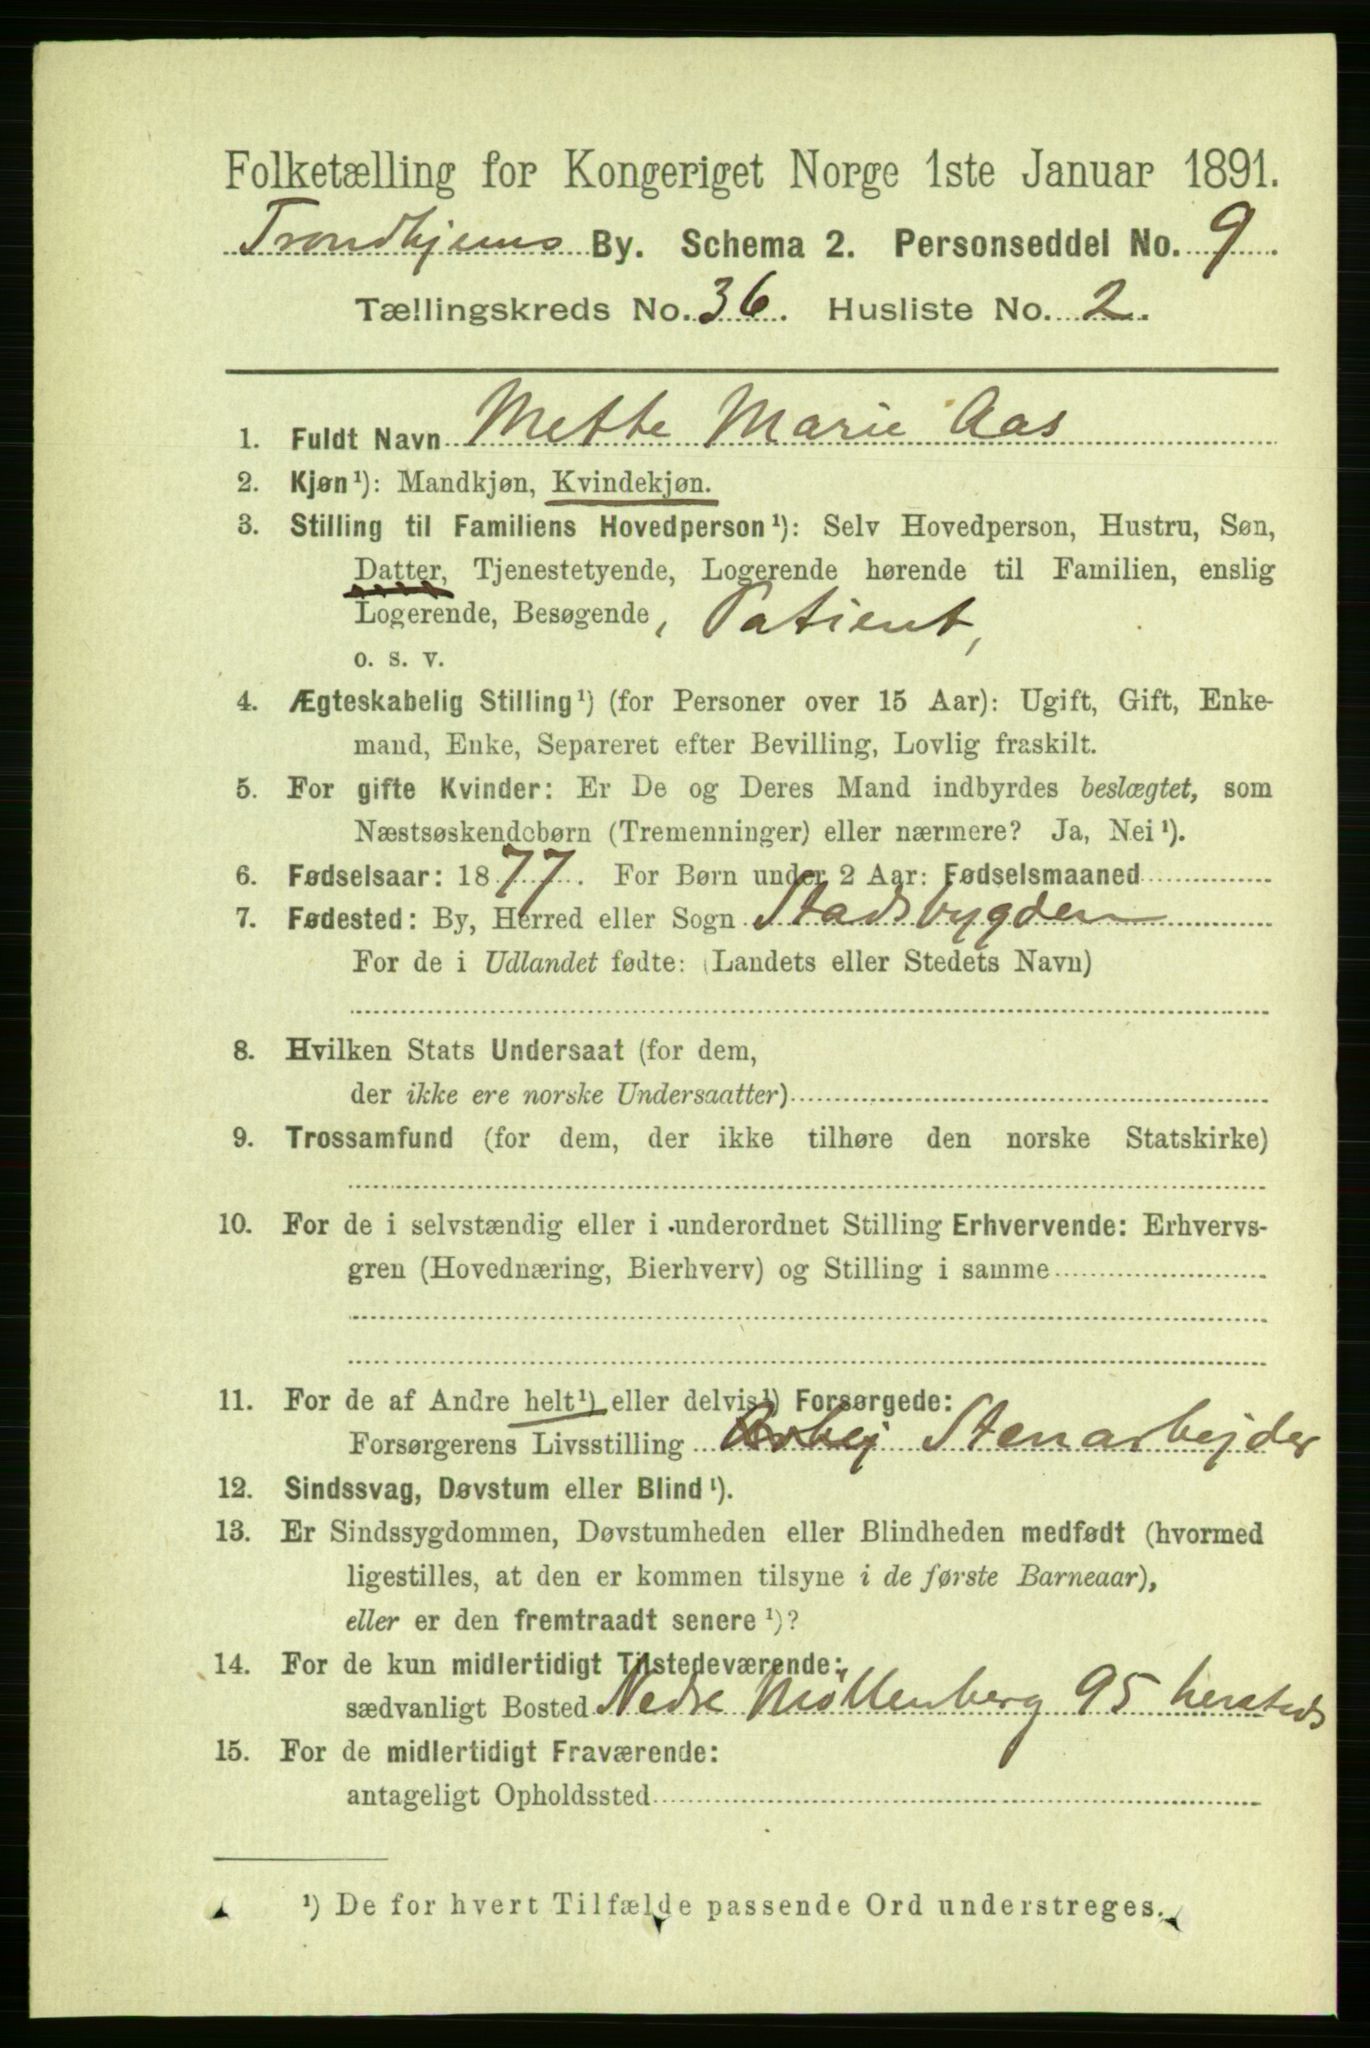 Folketælling for Kongeriget Norge 1ste Januar 1891.
Trondhjems By. Schema 2. Personseddel No. 9
Tællingskreds No. 36. Husliste No. 2.
1. Fuldt Navn Mette Marie Aas
2. Kjøn¹): Mandkjøn, Kvindekjøn.
3. Stilling til Familiens Hovedperson¹): Selv Hovedperson, Hustru, Søn,
Datter, Tjenestetyende, Logerende hørende til Familien, enslig
Logerende, Besøgende, Patient,
o. s. v.
4. Ægteskabelig Stilling¹) (for Personer over 15 Aar): Ugift, Gift, Enke-
mand, Enke, Separeret efter Bevilling, Lovlig fraskilt.
5. For gifte Kvinder: Er De og Deres Mand indbyrdes beslægtet, som
Næstsøskendebørn (Tremenninger) eller nærmere? Ja, Nei¹).
6. Fødselsaar: 1877. For Børn under 2 Aar: Fødselsmaaned
7. Fødested: By, Herred eller Sogn Stadsbygden
For de i Udlandet fødte: (Landets eller Stedets Navn)
8. Hvilken Stats Undersaat (for dem,
der ikke ere norske Undersaatter)
9. Trossamfund (for dem, der ikke tilhøre den norske Statskirke)
10. For de i selvstændig eller i underordnet Stilling Erhvervende: Erhvervs-
gren (Hovednæring, Bierhverv) og Stilling i samme
11. For de af Andre helt¹) eller delvis¹) Forsørgede:
Forsørgerens Livsstilling Arbej Stenarbejder
12. Sindssvag, Døvstum eller Blind¹).
13. Er Sindssygdommen, Døvstumheden eller Blindheden medfødt (hvormed
ligestilles, at den er kommen tilsyne i de første Barneaar),
eller er den fremtraadt senere¹)?
14. For de kun midlertidigt Tilstedeværende:
sædvanligt Bosted Nedre Möllenberg 95 hersteds
15. For de midlertidigt Fraværende:
antageligt Opholdssted
¹) De for hvert Tilfælde passende Ord understreges.